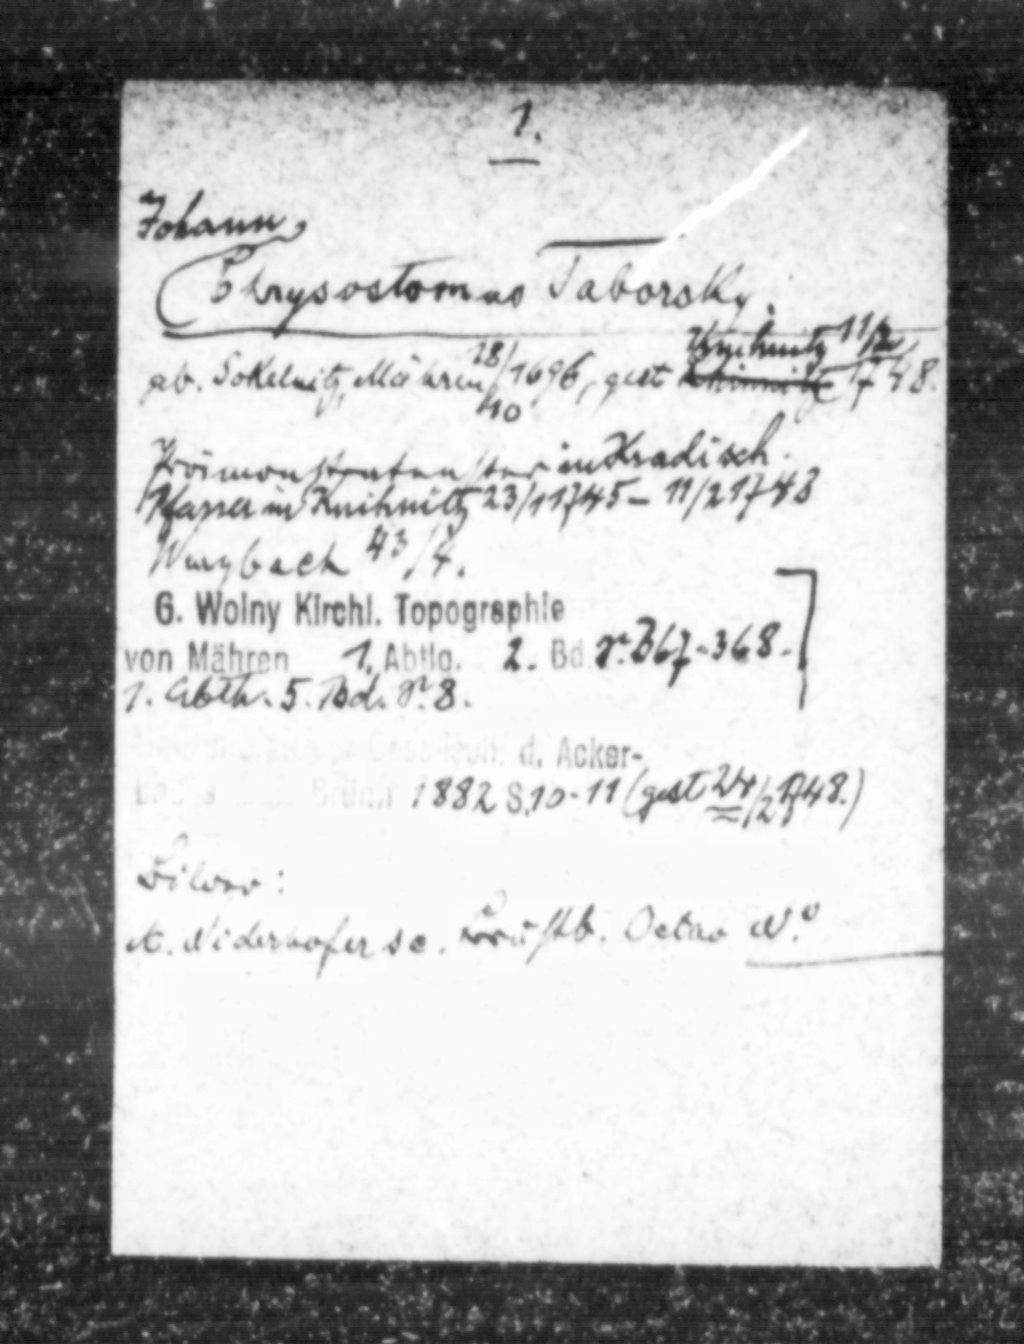 1.
Johann
Chrysostomus Taborsky.
Knihnitz 11/2
geb. Sokelnitz, Mähren 28/10 1696, gest 1748.
Prämonstratenser in Hradisch.
Pfarrer in Knihnitz 23/1 1745 – 11/2 1748
Wurzbach 43/4.
G. Wolny Kirchl. Topographie
von Mähren 1. Abtlg. 2. Bd S. 367-368.
1. Abth. 5. Bd. S. 8.
d. Acker-
Brünn 1882 S. 10-11 (gest 24/2 1748.)
Bilder:
A. Niderhofer sc. Brustb. Octav N.º